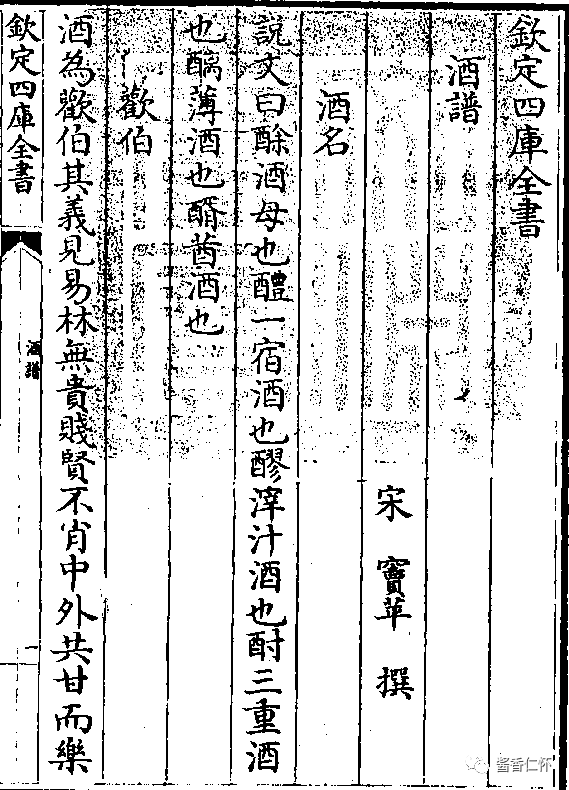 欽定四庫全書
酒譜
宋 竇苹 撰
酒名
說文曰酴酒母也醴一宿酒也醪滓汁酒也酎三重酒
也醨薄酒也醑莤酒也
歡伯
酒為歡伯其義見易林無貴賤賢不肖中外共甘而樂
欽定四庫全書
酒譜
一
酱香仁怀